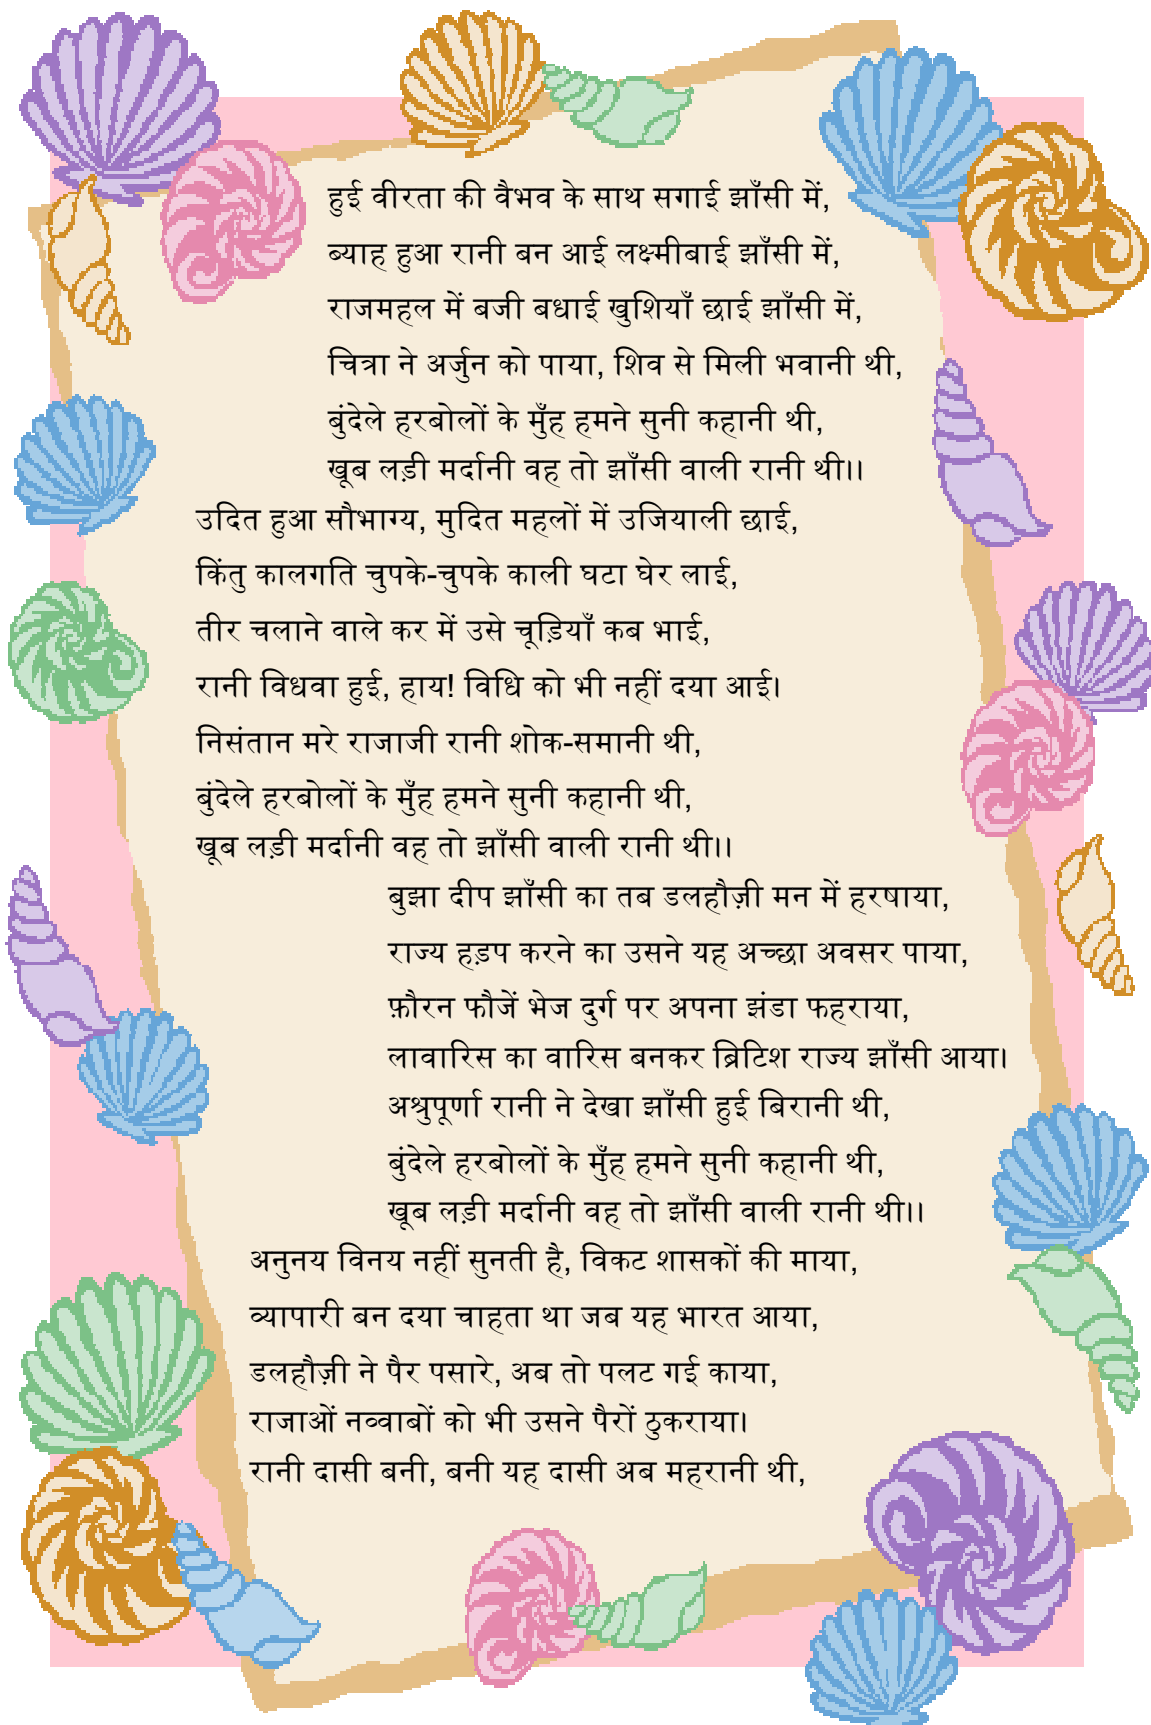 हुई वीरता की वैभव के साथ सगाई झाँसी में,
ब्याह हुआ रानी बन आई लक्ष्मीबाई झाँसी में,
राजमहल में बजी बधाई खुशियाँ छाई झाँसी में,
चित्रा ने अर्जुन को पाया, शिव से मिली भवानी थी,
बुंदेले हरबोलों के मुँह हमने सुनी कहानी थी,
खूब लड़ी मर्दानी वह तो झाँसी वाली रानी थी।।
उदित हुआ सौभाग्य, मुदित महलों में उजियाली छाई,
किंतु कालगति चुपके-चुपके काली घटा घेर लाई,
तीर चलाने वाले कर में उसे चूड़ियाँ कब भाई,
रानी विधवा हुई, हाय! विधि को भी नहीं दया आई।
निसंतान मरे राजाजी रानी शोक-समानी थी,
बुंदेले हरबोलों के मुँह हमने सुनी कहानी थी,
खूब लड़ी मर्दानी वह तो झाँसी वाली रानी थी।।
बुझा दीप झाँसी का तब डलहौज़ी मन में हरषाया,
राज्य हड़प करने का उसने यह अच्छा अवसर पाया,
फ़ौरन फौजें भेज दुर्ग पर अपना झंडा फहराया,
लावारिस का वारिस बनकर ब्रिटिश राज्य झाँसी आया।
अश्रुपूर्णा रानी ने देखा झाँसी हुई बिरानी थी,
बुंदेले हरबोलों के मुँह हमने सुनी कहानी थी,
खूब लड़ी मर्दानी वह तो झाँसी वाली रानी थी।।
अनुनय विनय नहीं सुनती है, विकट शासकों की माया,
व्यापारी बन दया चाहता था जब यह भारत आया,
डलहौज़ी ने पैर पसारे, अब तो पलट गई काया,
राजाओं नव्वाबों को भी उसने पैरों ठुकराया।
रानी दासी बनी, बनी यह दासी अब महरानी थी,